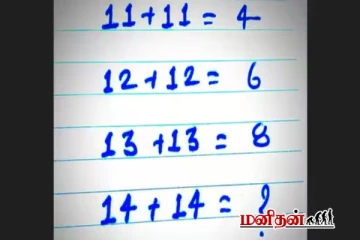 11+11= 4
12+12= 6
13+13= 8
14+14= ?
மனிதன்